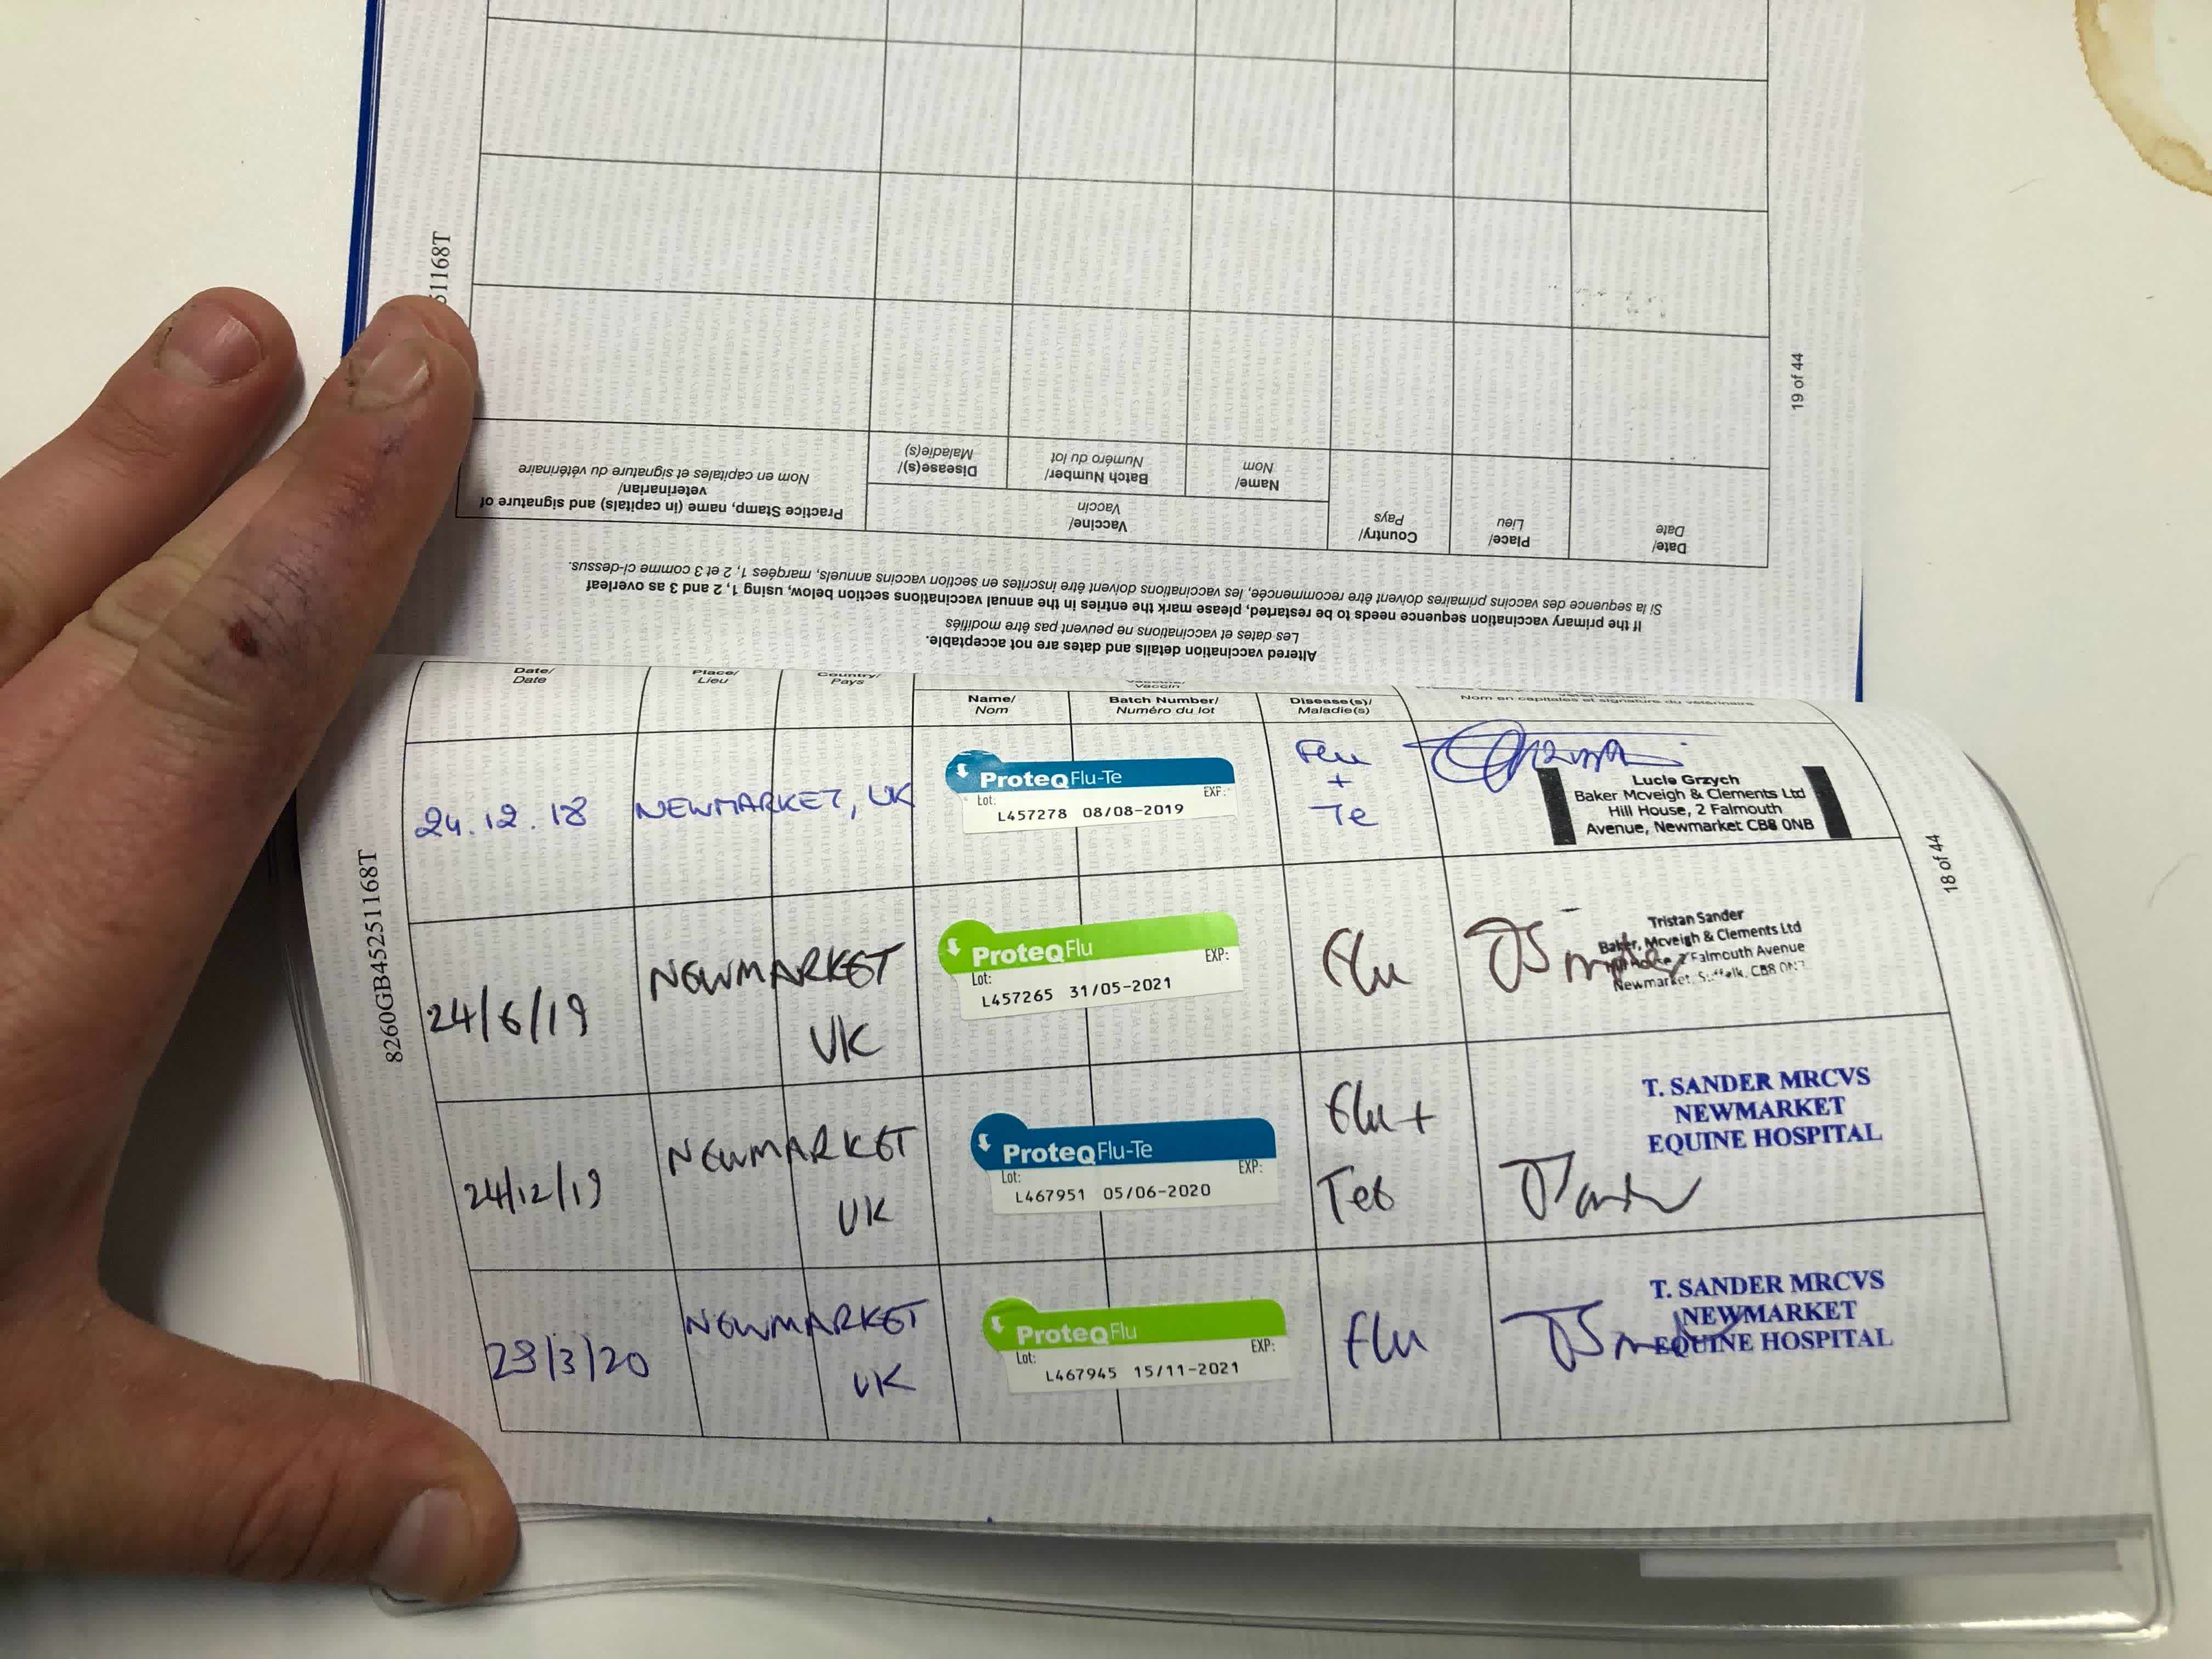 51168T
19 of 44
Practice Stamp, name (in capitals) and signature of
veterinarian/
Nom en capitales et signature du vétérinaire
Disease(s)/
Maladie(s)
Batch Number/
Numéro du lot
Name/
Nom
Vaccine/
Vaccin
Country/
Pays
Place/
Lieu
Date/
Date
If the primary vaccination sequence needs to be restarted, please mark the entries in the annual vaccinations section below, using 1, 2 and 3 as overleaf
Si la sequence des vaccins primaires doivent être recommencée, les vaccinations doivent être inscrites en section vaccins annuels, marqées 1, 2 et 3 comme ci-dessus.
Altered vaccination details and dates are not acceptable.
Les dates et vaccinations ne peuvent pas être modifiés
Date/
Date
Place/
Lieu
Country/
Pays
Vaccine/
Vaccin
Name/
Nom
Batch Number/
Numéro du lot
Disease(s)/
Maladie(s)
Nom en capitales et signature du vétérinaire
8260GB45251168T
18 of 44
24.12.18
NEWMARKET, UK
ProteqFlu-Te
Lot: EXP:
L457278 08/08-2019
Flu
+
Te
Lucie Grzych
Baker Mcveigh & Clements Ltd
Hill House, 2 Falmouth
Avenue, Newmarket CB8 0NB
24/6/19
NEWMARKET
UK
ProteqFlu
Lot: EXP:
L457265 31/05-2021
Flu
Tristan Sander
Baker, Mcveigh & Clements Ltd
Hill House, 2 Falmouth Avenue
Newmarket, Suffolk, CB8
24/12/19
NEWMARKET
UK
ProteqFlu-Te
Lot: EXP:
L467951 05/06-2020
Flu +
Tet
T. SANDER MRCVS
NEWMARKET
EQUINE HOSPITAL
/3/20
NEWMARKET
UK
ProteqFlu
Lot: EXP:
L467945 15/11-2021
Flu
T. SANDER MRCVS
NEWMARKET
EQUINE HOSPITAL